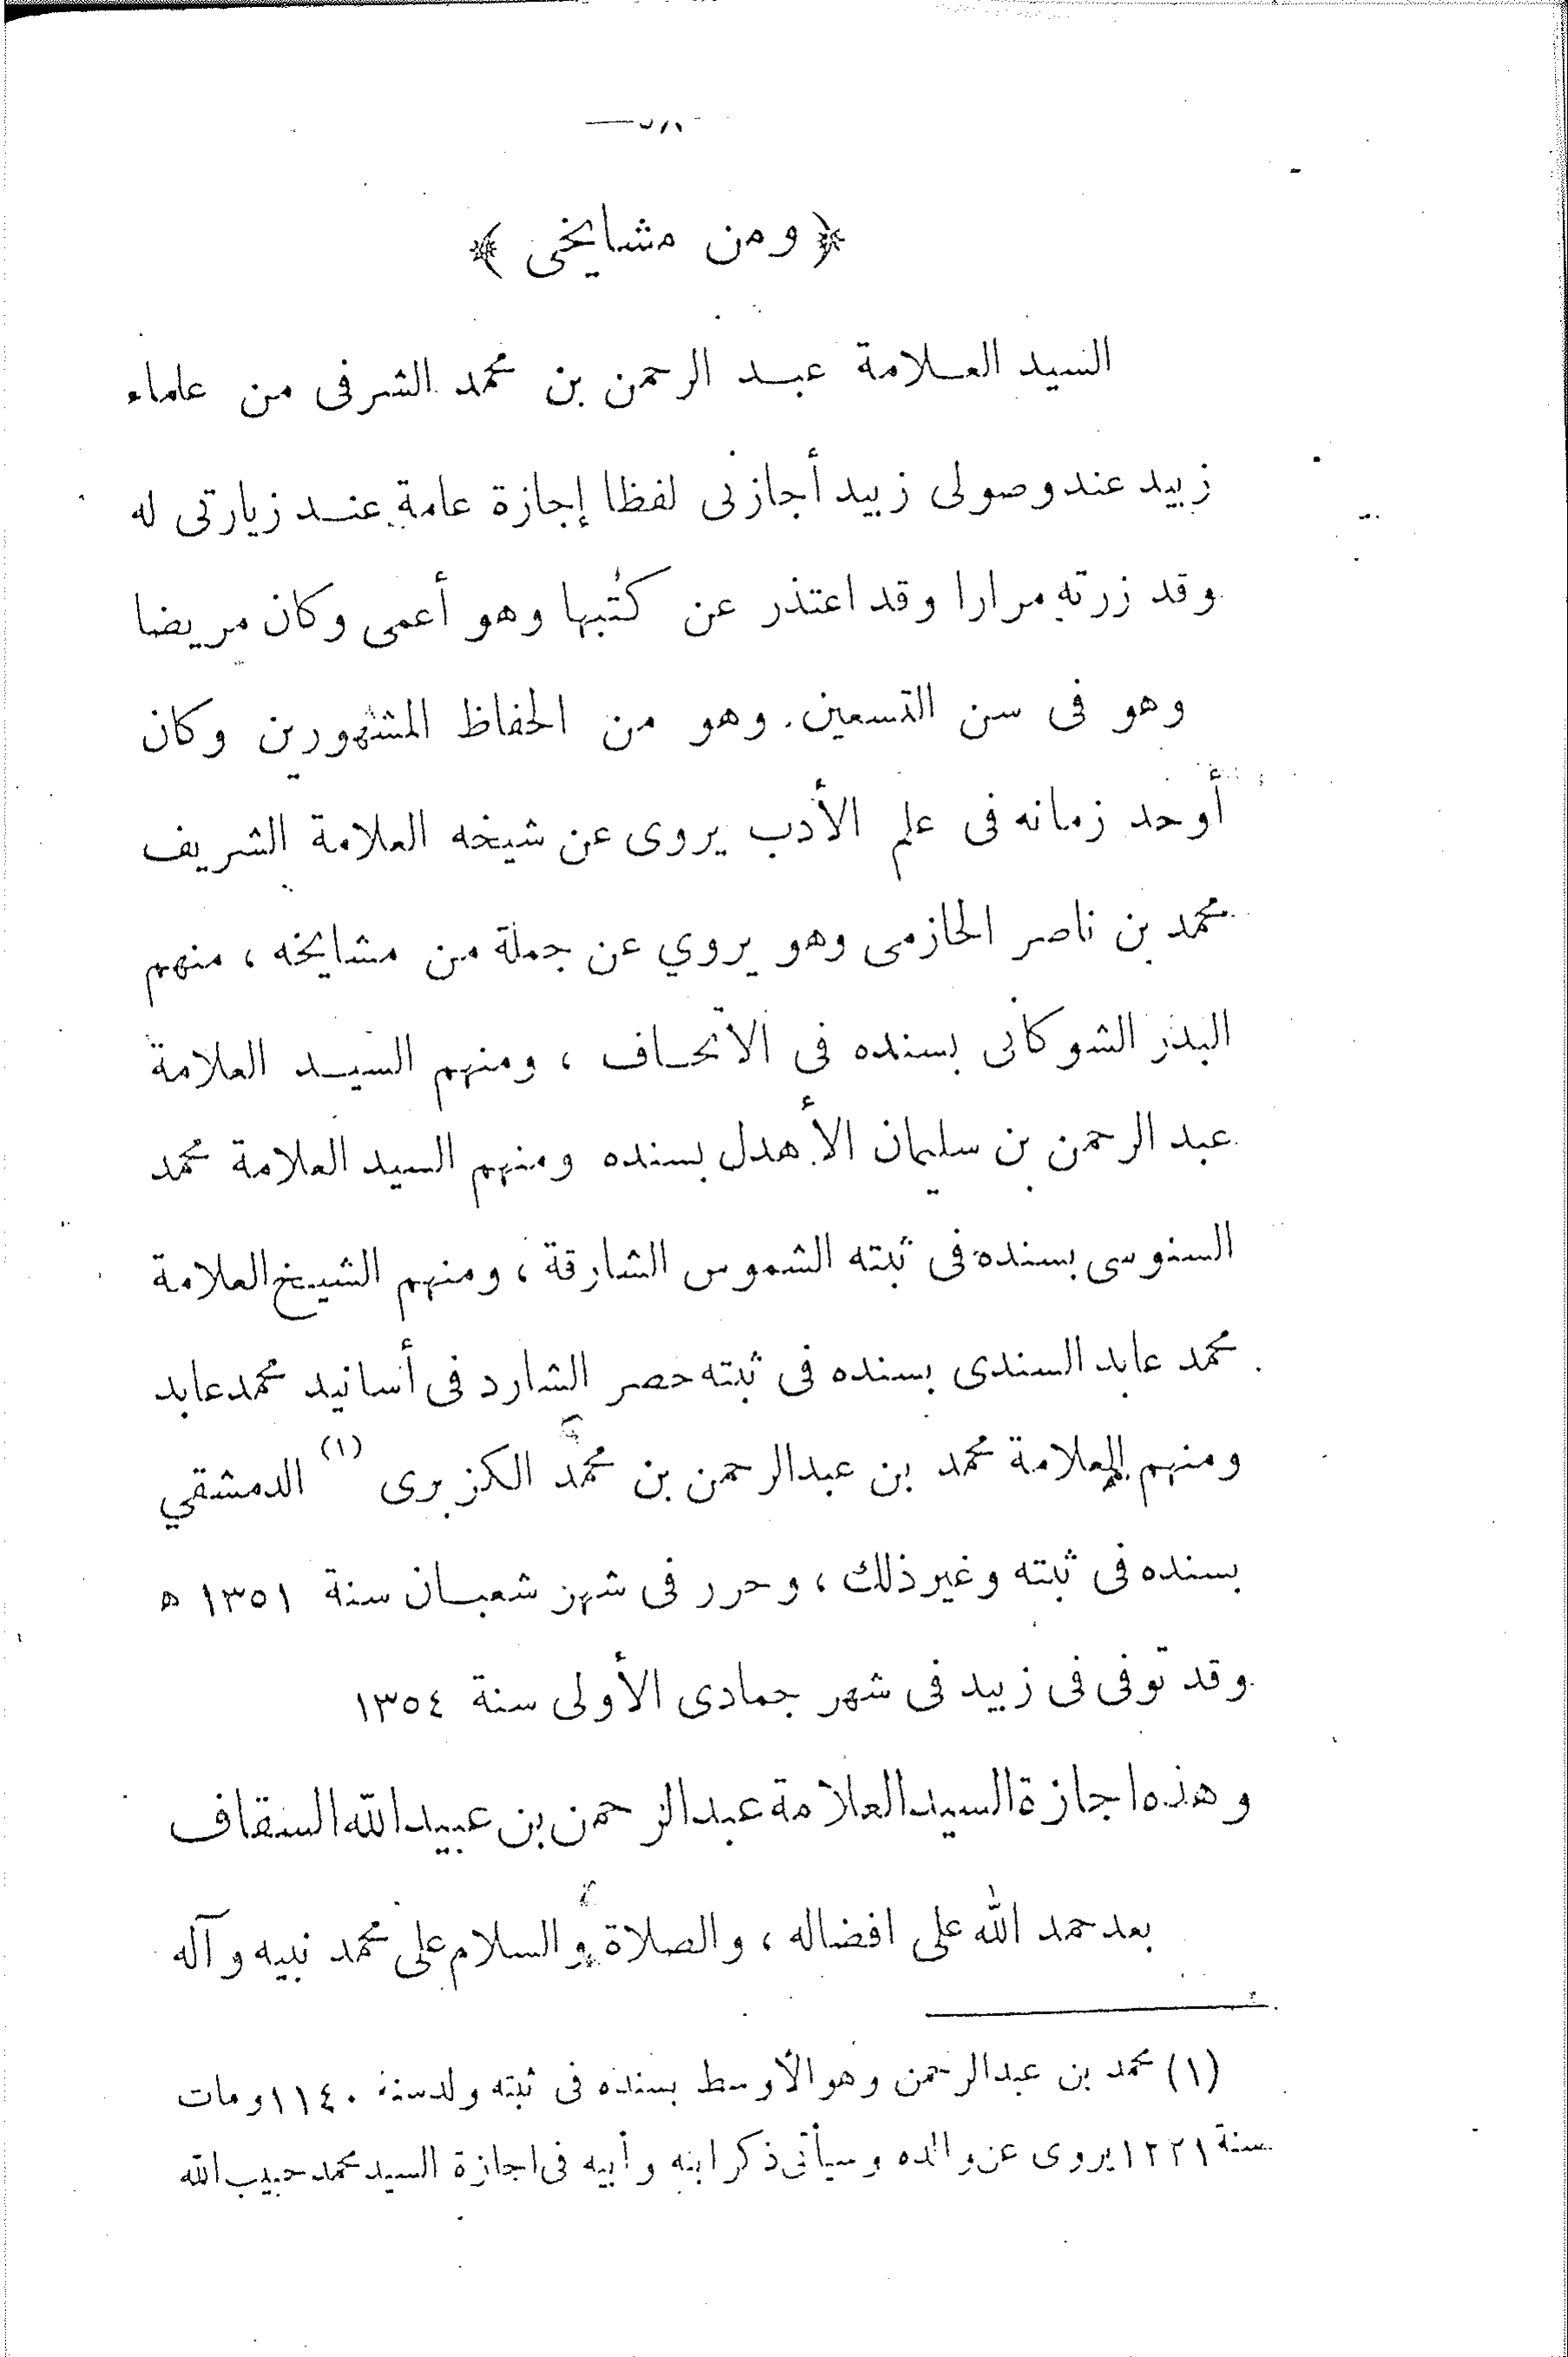 ﴿ ومن مشايخى ﴾
السيد العلامة عبد الرحمن بن محمد الشرفى من علماء
زبيد عند وصولى زبيد أجازنى لفظا إجازة عامة عند زيارتى له
وقد زرته مرارا وقد اعتذر عن كتبها وهو أعمى وكان مريضا
وهو فى سن التسعين. وهو من الحفاظ المشهورين وكان
أوحد زمانه فى علم الأدب يروى عن شيخه العلامة الشريف
محمد بن ناصر الحازمى وهو يروي عن جملة من مشايخه ، منهم
البدر الشوكانى بسنده فى الاتحاف ، ومنهم السيد العلامة
عبد الرحمن بن سليمان الأهدل بسنده ومنهم السيد العلامة محمد
السنوسى بسنده فى ثبته الشموس الشارقة ، ومنهم الشيخ العلامة
محمد عابد السندى بسنده فى ثبته حصر الشارد فى أسانيد محمد عابد
ومنهم العلامة محمد بن عبد الرحمن بن محمد الكزبرى (١) الدمشقي
بسنده فى ثبته وغير ذلك ، وحرر فى شهر شعبان سنة ١٣٥١ ه
وقد توفى فى زبيد فى شهر جمادى الأولى سنة ١٣٥٤
وهذه اجازة السيد العلامة عبد الرحمن بن عبيد الله السقاف
بعد حمد الله على افضاله ، والصلاة والسلام على محمد نبيه وآله
(١) محمد بن عبد الرحمن وهو الأوسط بسنده فى ثبته ولد سنة ١١٤٠ ومات
سنة ١٢٢١ يروى عن والده وسيأتى ذكر ابنه وأبيه فى اجازة السيد محمد حبيب الله